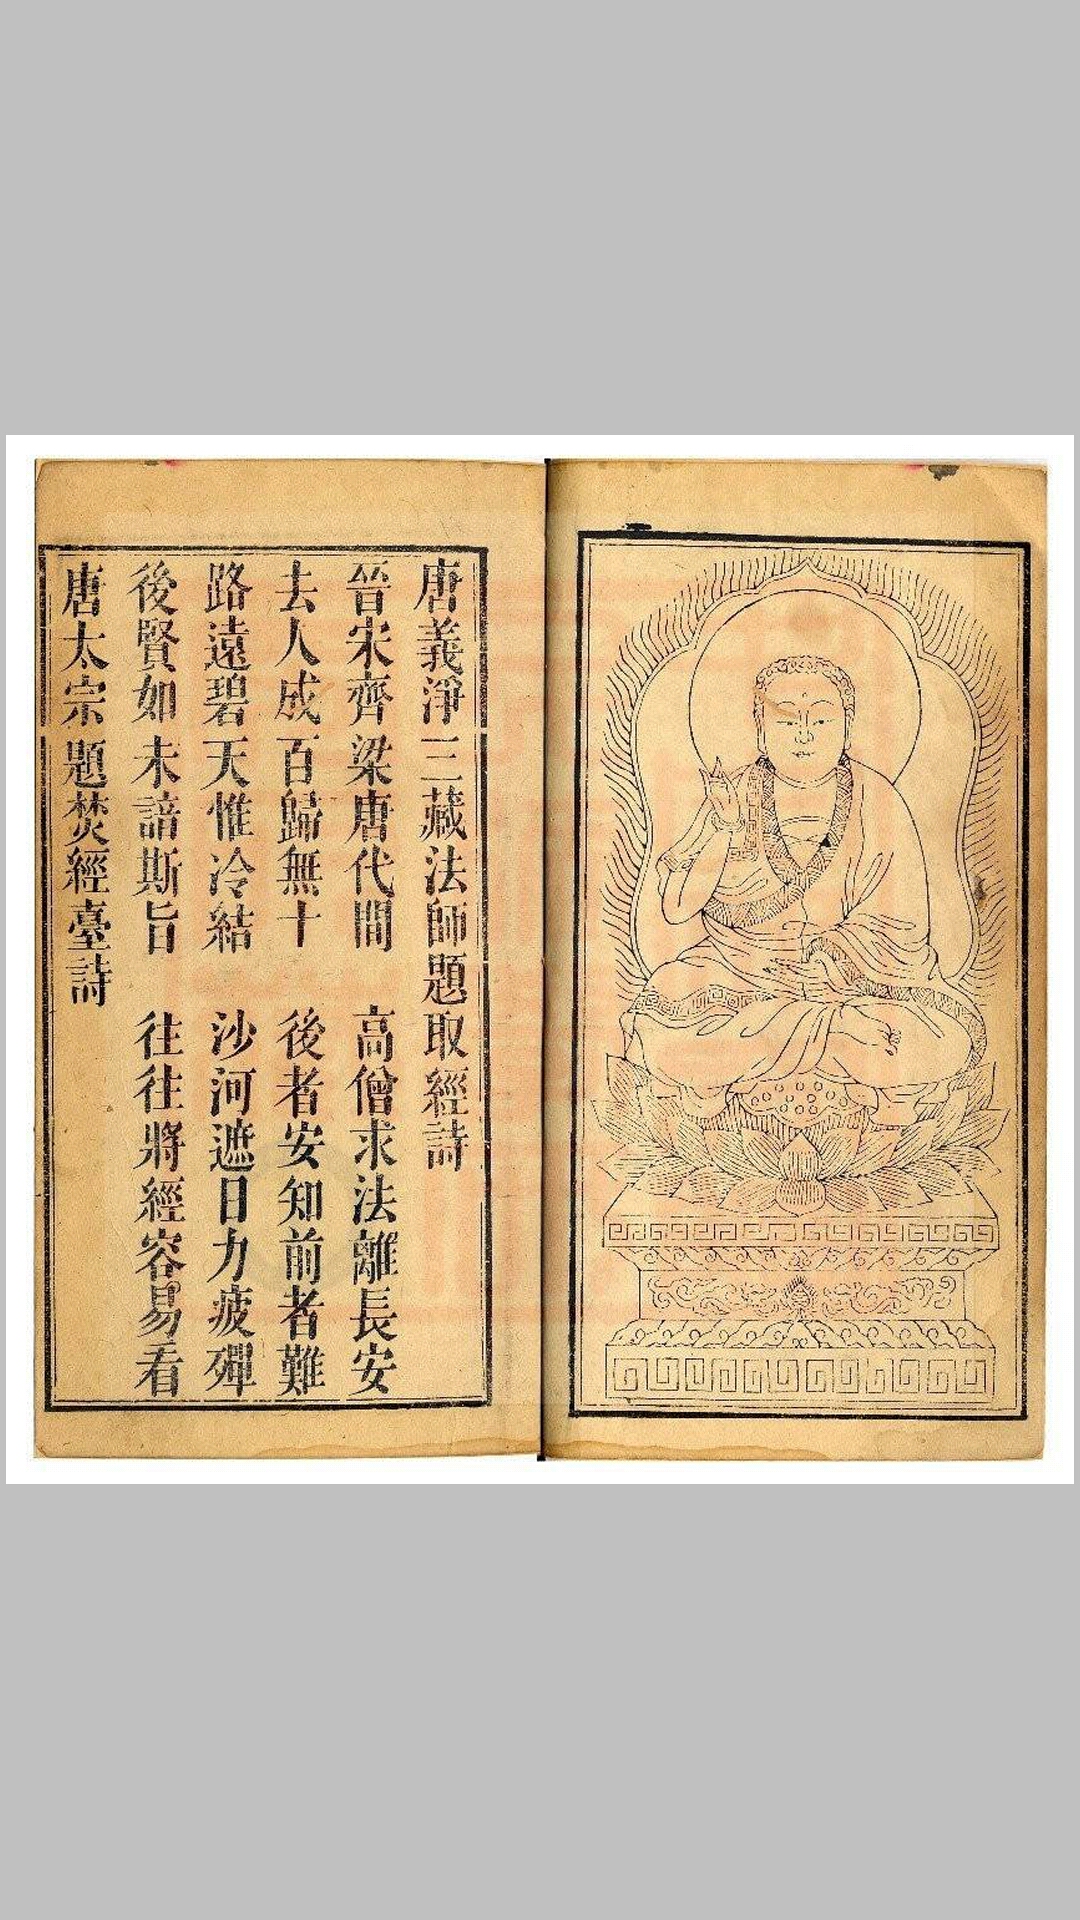 唐義淨三藏法師題取經詩
晉宋齊梁唐代間　高僧求法離長安
去人成百歸無十　後者安知前者難
路遠碧天惟冷結　沙河遮日力疲殫
後賢如未諳斯旨　往往將經容易看
唐太宗題焚經臺詩